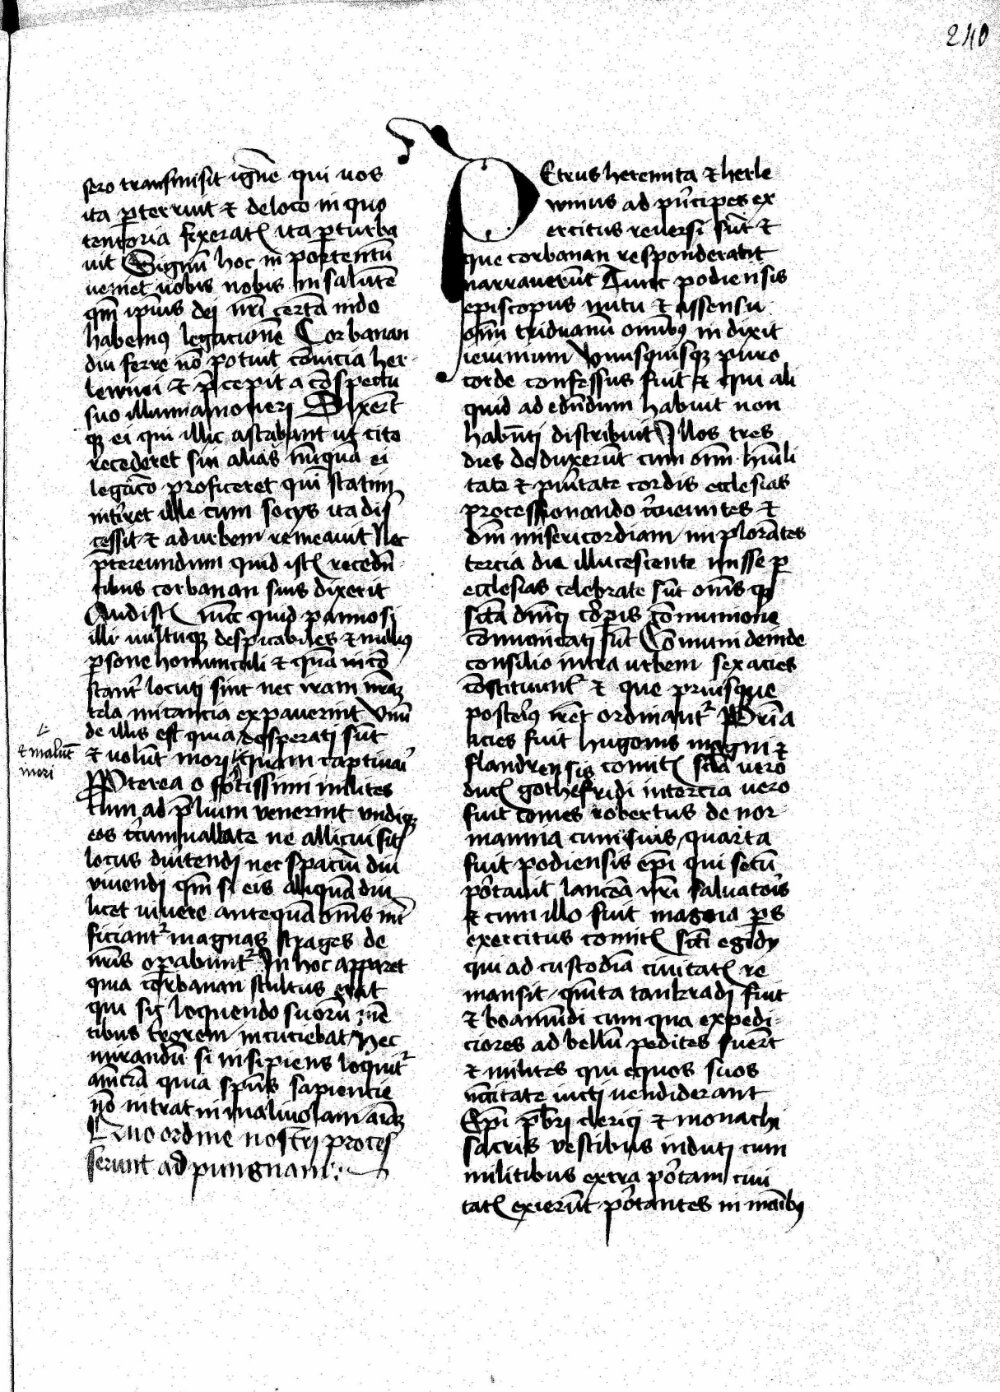 240
sero transmisit igne qui uos
ita perterruit et de loco in quo
tentoria fixeratis ita perturba
uit Signum hoc in portentum
ueniet uobis nobis in salutem
qm ipsius dei nri certam inde
habemus legacionem Corbanan
diu ferre no potuit conuicia her
leuuini et pcepit a conspectu
suo illum amoueri Dixerut
que ei qui illic astabant ut cito
recederet sin alias nunqua ei
legacio proficeret quin statim
interiret ille cum socijs ita dis
cessit et ad urbem remeauit Nec
ptereundum quid istis receden
tibus corbanan suis dixerit
Audistis nunc quid pannosi
illi uultuque despicabiles et nullius
persone homunculi et quam incon
stanter locuti sint nec iram nram
tela mitancia expauerint Vnum
de illis est quia desperati sunt
et uolunt mori quam captiuari
et malunt
mori
Pterea o fortissimi milites
cum ad plium uenerint undique
eos circumuallate ne alicui sit
locus diuertendi nec spacium diu
viuendi qm si eis aliquam diu
licet uiuere antequam omnes inter
ficiantur magnas strages de
nris operabuntur In hoc apparet
quia corbanan stultus erat
qui sic loquendo suorum men
tibus terrorem incuciebat Nec
mirandum si insipiens loquitur
quia spus sapiencie
no intrat in maliuolam aiam
Quo ordine nostri proces
serunt ad pungnam
PEtrus heremita et herle
winus ad principes ex
ercitus reuersi sunt et
que corbanan responderatit
narrauerunt Tunc podiensis
episcopus nutu et assensu
omni triduanum omnibus indixit
ieiunium Vnusquisque puro
corde confessus fuit et qui ali
quid ad edendum habuit non
habenti distribuit Illos tres
dies deduxerunt cum omni humili
tate et puritate cordis ecclesias
processionando circueuntes et
dni misericordiam implorantes
tercia die illucescente misse per
ecclesias celebrate sunt omnesque
scta dnici corporis communione
communicati sunt Communi deinde
consilio intra urbem sex acies
constituuntur et que priusque
posterius iret ordinantur Prima
acies fuit hugonis magni et
flandrensis comitis scda vero
ducis gothefridi in tercia uero
fuit comes robertus de nor
mannia cum suis quarta
fuit podiensis epi qui secum
portauit lanceam nri saluatoris
et cum illo fuit magna pars
exercitus comitis scti egidij
qui ad custodiam ciuitatis re
mansit quinta tankradi fuit
et boamundi cum qua expedi
ciores ad bellum pedites fuerunt
et milites qui equos suos
necessitate uicti uendiderant
Epi presbri clerici et monachi
sacris vestibus induti cum
militibus extra portam ciui
tatis exierunt portantes in manibus